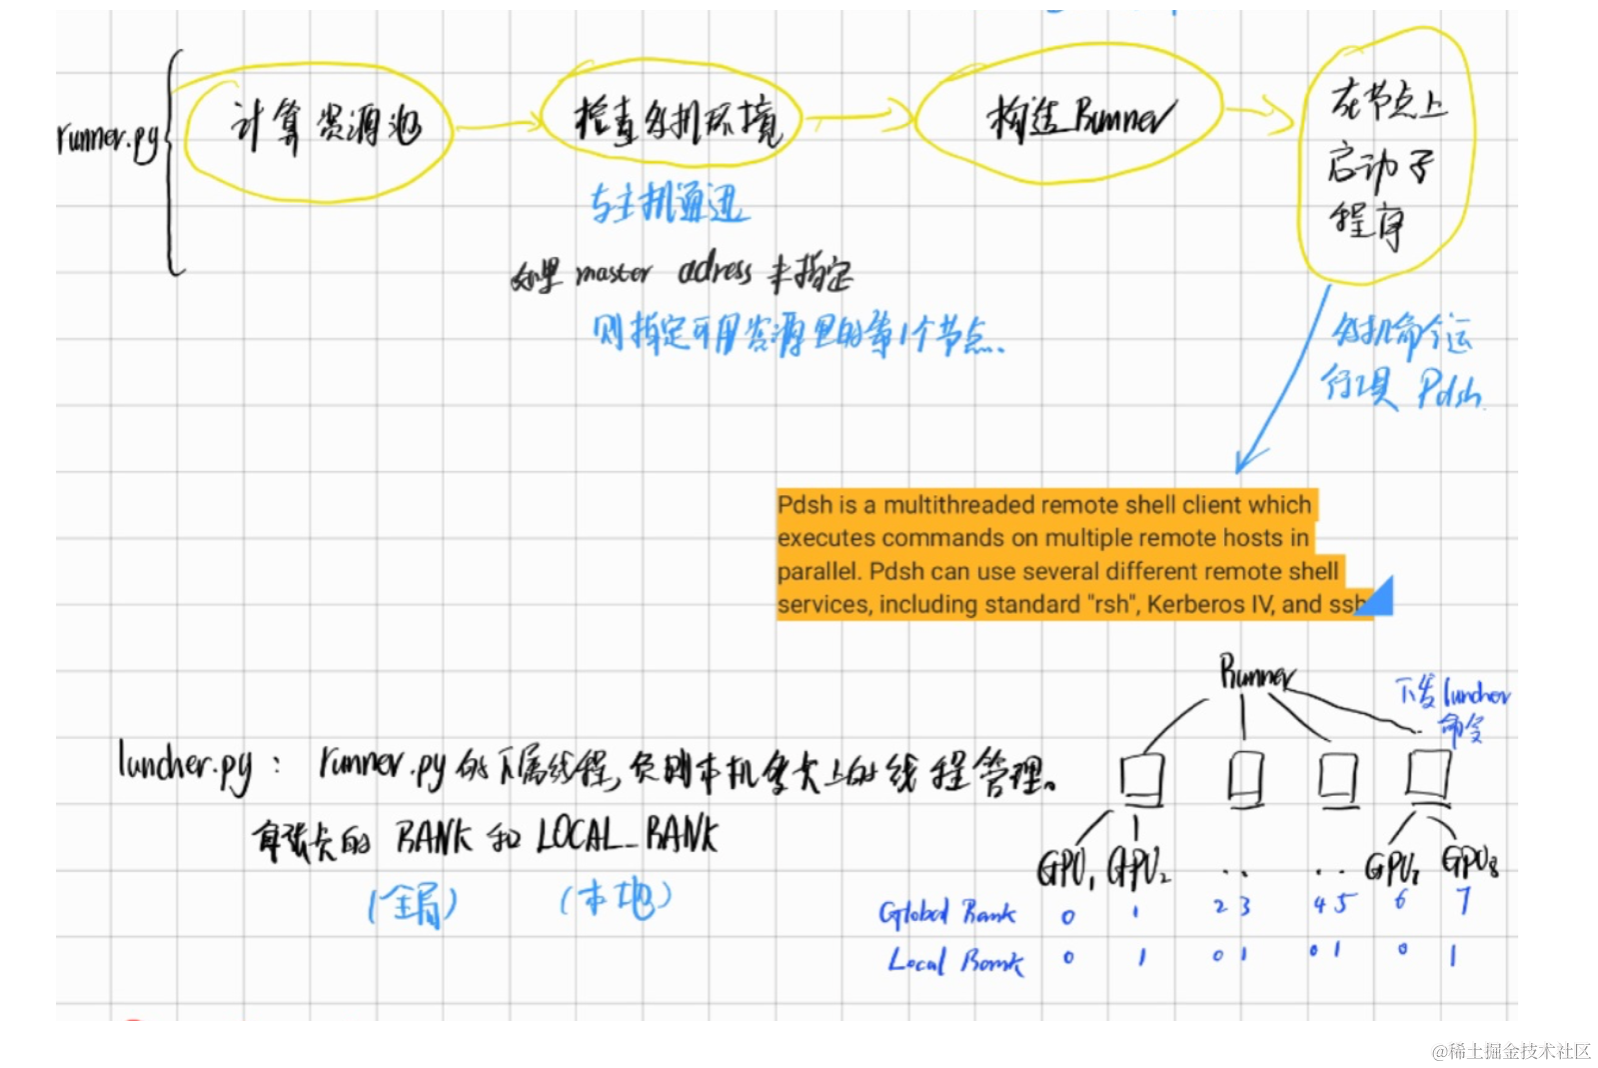 runner.py
计算资源池
检查多机环境
构造Runner
在节点上
启动子
程序
与主机通迅
如果 master adress 未指定
则指定可用资源里的第1个节点.
多机命令运
行工具 Pdsh.
Pdsh is a multithreaded remote shell client which
executes commands on multiple remote hosts in
parallel. Pdsh can use several different remote shell
services, including standard "rsh", Kerberos IV, and ssh
Runner
下发luncher
命令
luncher.py: runner.py的下属线程,负责本机多卡上的线程管理。
每张卡的 RANK 和 LOCAL_RANK
(全局) (本地)
GPU1 GPU2 .. .. GPU7 GPU8
Global Rank 0 1 2 3 4 5 6 7
Local Rank 0 1 0 1 0 1 0 1
@稀土掘金技术社区